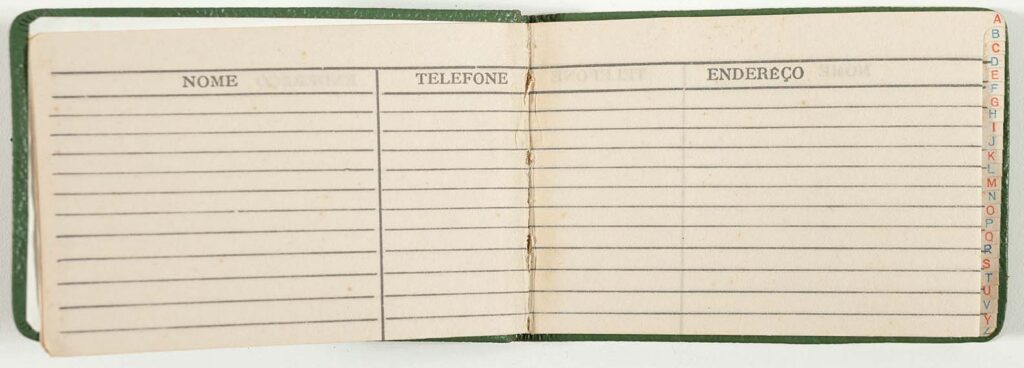 NOME TELEFONE ENDERÊÇO
A
B
C
D
E
F
G
H
I
J
K
L
M
N
O
P
Q
R
S
T
U
V
Y
Z